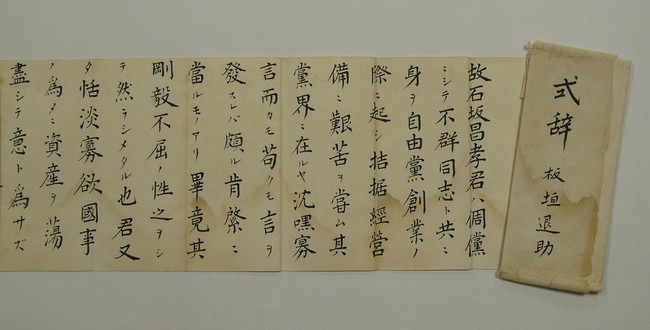 式辞
板垣退助
故石坂昌孝君ハ倜儻
ニシテ不群同志ト共ニ
身ヲ自由黨創業ノ
際ニ起シ拮据經營
備ニ艱苦ヲ甞ム其
黨界ニ在ルヤ沈嘿寡
言而カモ苟クモ言ヲ
發スレバ頗ル肯綮ニ
當ルモノアリ畢竟其
剛毅不屈ノ性之ヲシ
テ然ラシメタル也君又
タ恬淡寡欲國事
ノ為メニ資産ヲ蕩
盡シテ意ト為サズ